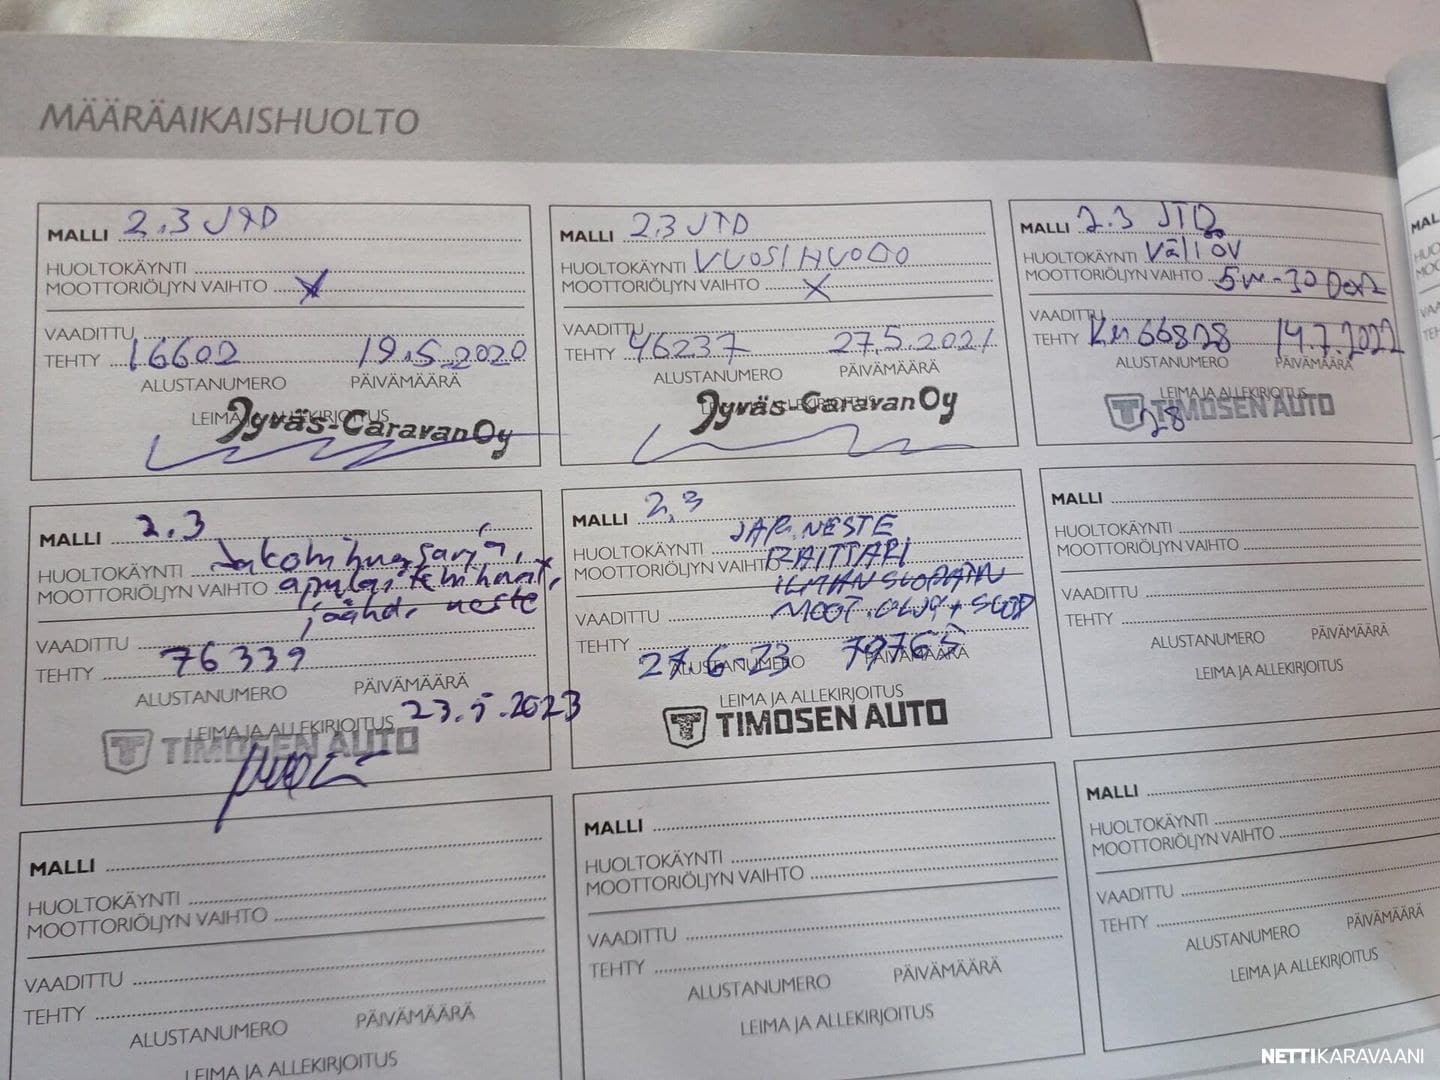 MÄÄRÄAIKAISHUOLTO
MALLI 2.3 JTD
HUOLTOKÄYNTI
MOOTTORIÖLJYN VAIHTO X
VAADITTU
TEHTY 16602 19.5.2020
ALUSTANUMERO PÄIVÄMÄÄRÄ
LEIMA JA ALLEKIRJOITUS
Jyväs-Caravan Oy
MALLI 2.3 JTD
HUOLTOKÄYNTI VUOSIHUOLTO
MOOTTORIÖLJYN VAIHTO X
VAADITTU
TEHTY 46237 27.5.2021
ALUSTANUMERO PÄIVÄMÄÄRÄ
Jyväs-Caravan Oy
MALLI 2.3 JTD
HUOLTOKÄYNTI Väli ÖV
MOOTTORIÖLJYN VAIHTO 5W-30
VAADITTU
TEHTY Km 66828 14.7.2022
ALUSTANUMERO PÄIVÄMÄÄRÄ
LEIMA JA ALLEKIRJOITUS
TIMOSEN AUTO
28
MALLI 2.3
HUOLTOKÄYNTI Jakohihnasarja,
MOOTTORIÖLJYN VAIHTO apulaitehihnat,
jäähd. neste
VAADITTU
TEHTY 76339
ALUSTANUMERO PÄIVÄMÄÄRÄ
23.5.2023
LEIMA JA ALLEKIRJOITUS
TIMOSEN AUTO
MALLI 2,3
JAR.NESTE
HUOLTOKÄYNTI RAITTARI
MOOTTORIÖLJYN VAIHTO
ILMANSUODATIN
VAADITTU MOOT.ÖLJY + SUOD
TEHTY
27.6.23 79765
ALUSTANUMERO PÄIVÄMÄÄRÄ
LEIMA JA ALLEKIRJOITUS
TIMOSEN AUTO
MALLI
HUOLTOKÄYNTI
MOOTTORIÖLJYN VAIHTO
VAADITTU
TEHTY
ALUSTANUMERO PÄIVÄMÄÄRÄ
LEIMA JA ALLEKIRJOITUS
MALLI
HUOLTOKÄYNTI
MOOTTORIÖLJYN VAIHTO
VAADITTU
TEHTY
ALUSTANUMERO PÄIVÄMÄÄRÄ
LEIMA JA ALLEKIRJOITUS
MALLI
HUOLTOKÄYNTI
MOOTTORIÖLJYN VAIHTO
VAADITTU
TEHTY
ALUSTANUMERO PÄIVÄMÄÄRÄ
LEIMA JA ALLEKIRJOITUS
MALLI
HUOLTOKÄYNTI
MOOTTORIÖLJYN VAIHTO
VAADITTU
TEHTY
ALUSTANUMERO PÄIVÄMÄÄRÄ
LEIMA JA ALLEKIRJOITUS
NETTIKARAVAANI